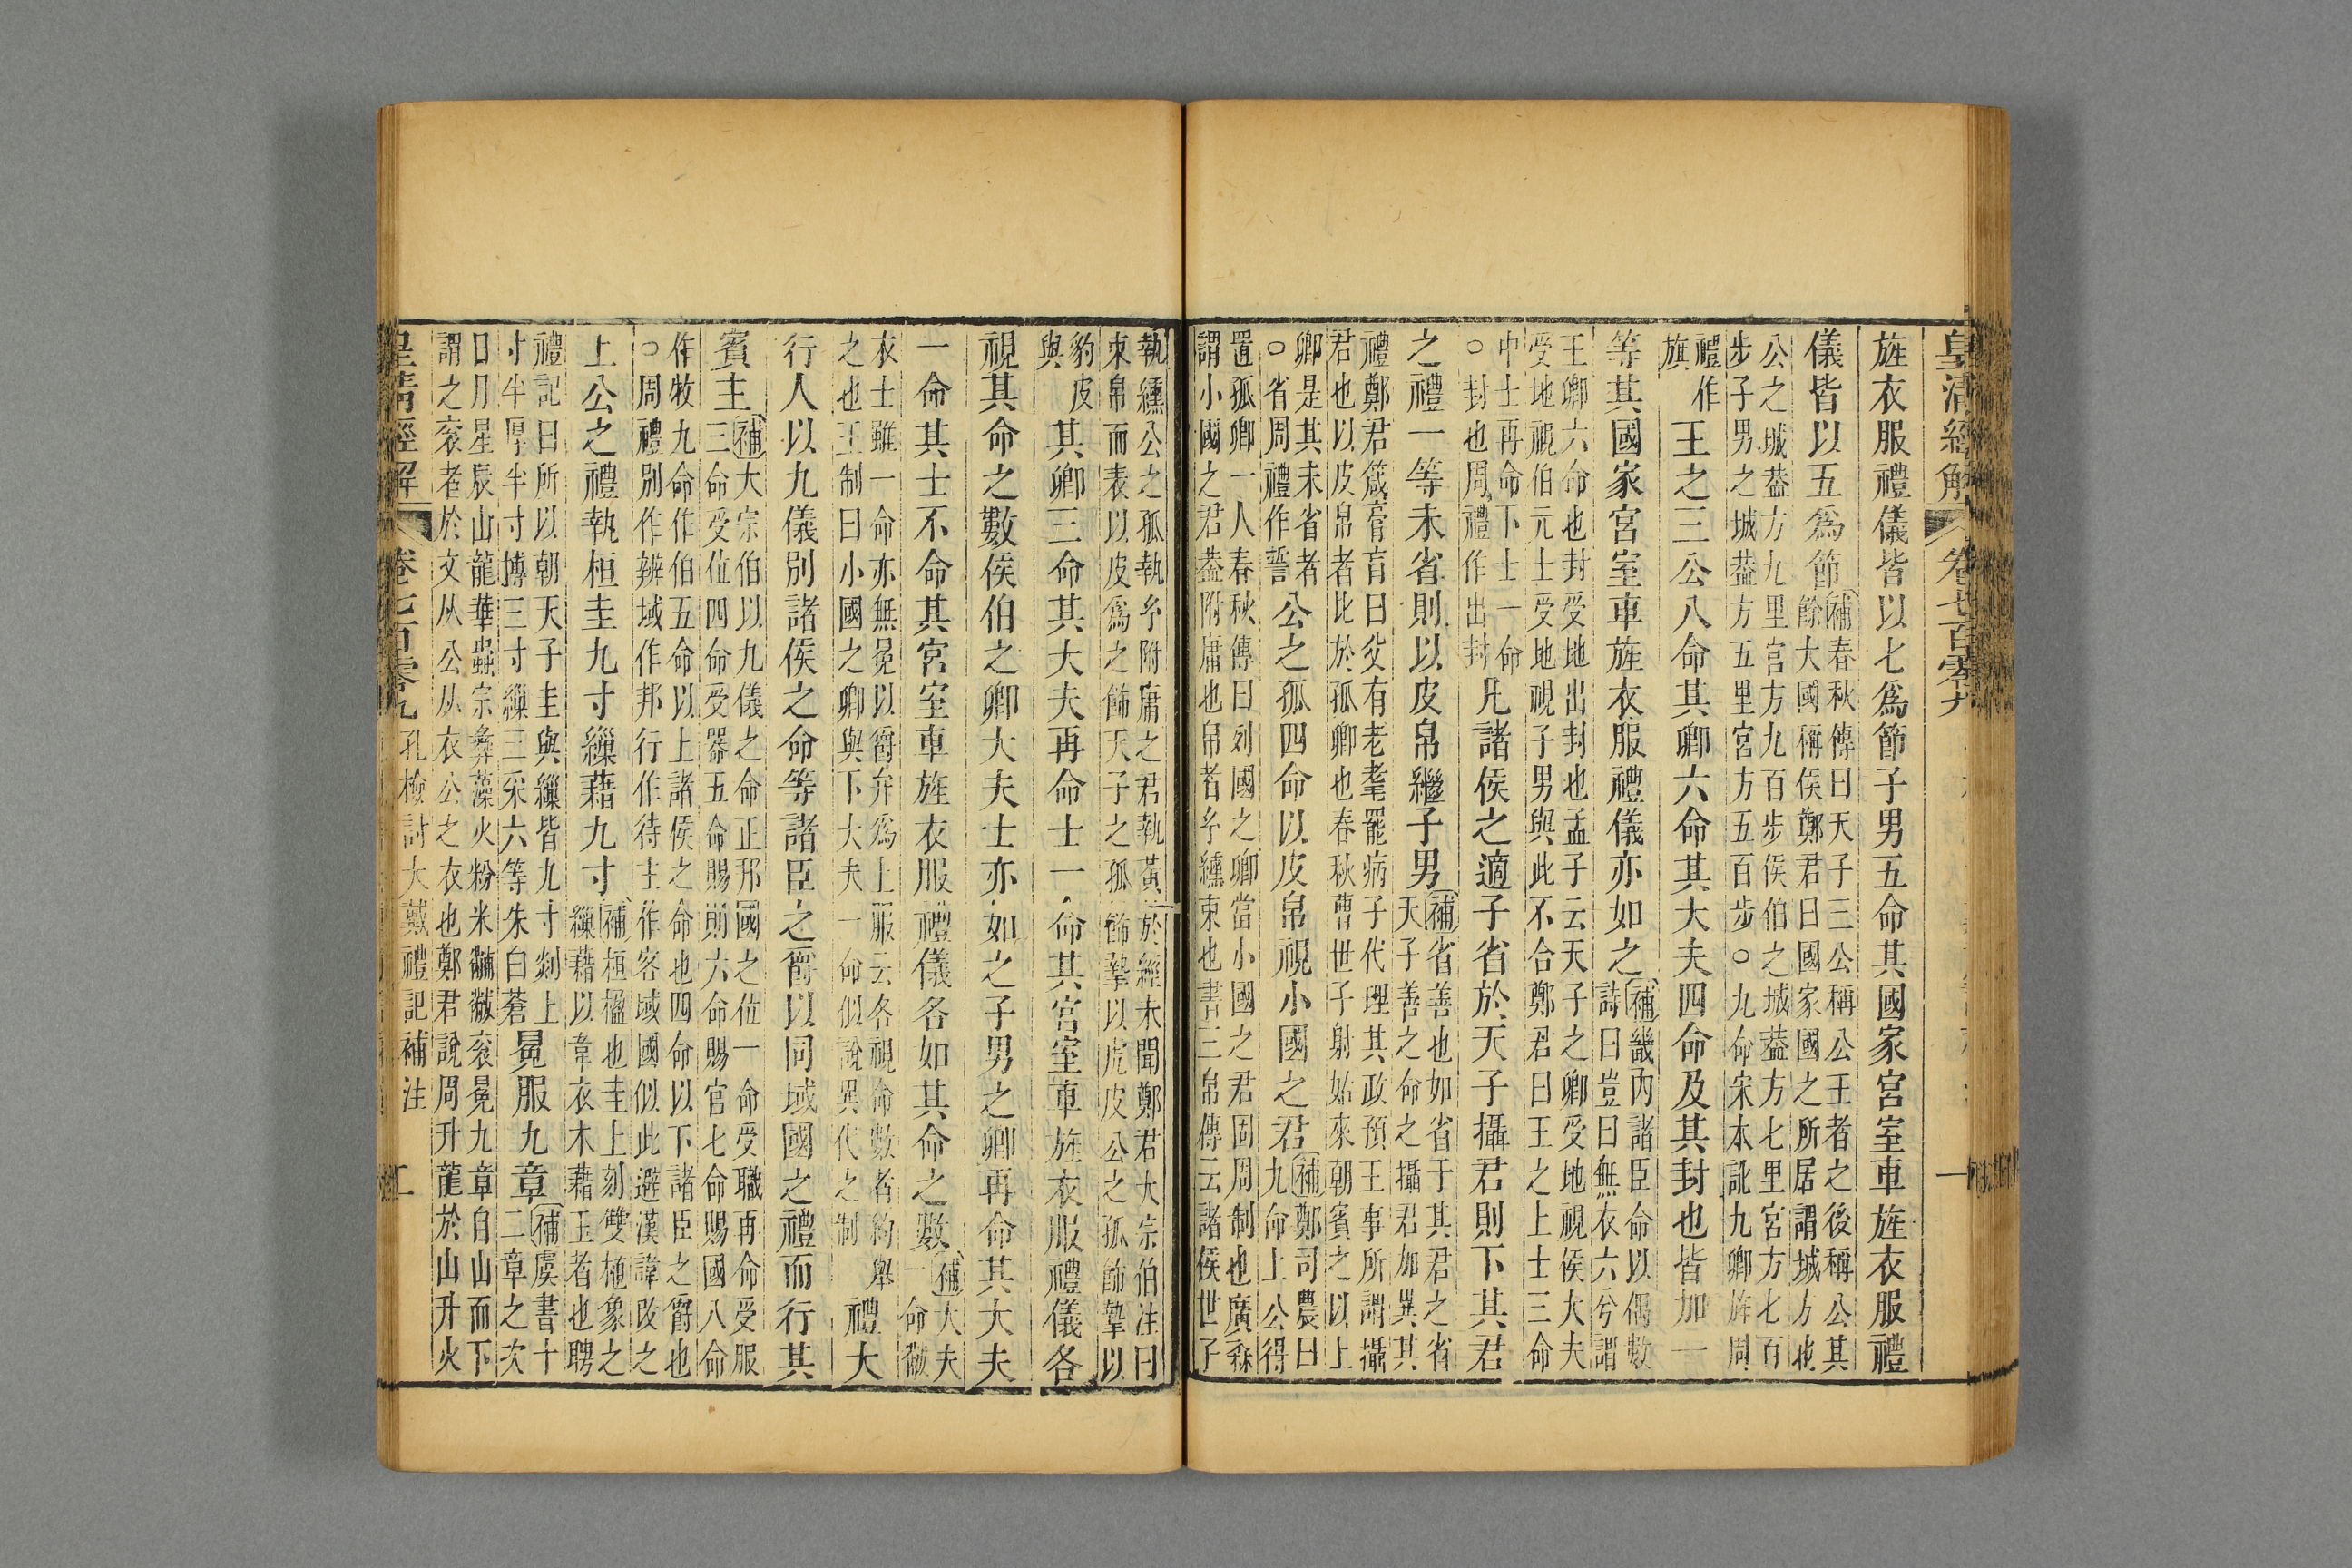 皇清經解 卷七百零九 一
旌衣服禮儀皆以七爲節子男五命其國家宮室車旌衣服禮
儀皆以五爲節
補春秋傳曰天子三公稱公王者之後稱公其
餘大國稱侯鄭君曰國家國之所居謂城方也
公之城葢方九里宮方九百步侯伯之城葢方七里宮方七百
步子男之城葢方五里宮方五百步○九命宋本訛九卿旌周
禮作
旗
王之三公八命其卿六命其大夫四命及其封也皆加一
等其國家宮室車旌衣服禮儀亦如之
補畿內諸臣命以偶數
詩曰豈曰無衣六兮謂
王卿六命也封受地出封也孟子云天子之卿受地視侯大夫
受地視伯元士受地視子男與此不合鄭君曰王之上士三命
中士再命下士一命
○封也周禮作出封
凡諸侯之適子省於天子攝君則下其君
之禮一等未省則以皮帛繼子男
補省善也如省于其君之省
天子善之命之攝君加異其
禮鄭君箴膏肓曰父有老耄罷病子代理其政預王事所謂攝
君也以皮帛者比於孤卿也春秋曹世子射姑來朝賓之以上
卿是其未省者
○省周禮作誓
公之孤四命以皮帛視小國之君
補鄭司農曰
九命上公得
置孤卿一人春秋傳曰列國之卿當小國之君固周制也廣森
謂小國之君葢附庸也帛者纁束也書三帛傳云諸侯世子
執纁公之孤執附庸之君執黃於經未聞鄭君大宗伯注曰
束帛而表以皮爲之飾天子之孤飾摯以虎皮公之孤飾摯以
豹皮
與
其卿三命其大夫再命士一命其宮室車旌衣服禮儀各
視其命之數侯伯之卿大夫士亦如之子男之卿再命其大夫
一命其士不命其宮室車旌衣服禮儀各如其命之數
補大夫
一命黻
衣士雖一命亦無冕以爵弁爲上服云各視命數者約舉
之也王制曰小國之卿與下大夫一命似說異代之制
禮大
行人以九儀別諸侯之命等諸臣之爵以同域國之禮而行其
賓主
補大宗伯以九儀之命正邦國之位一命受職再命受服
三命受位四命受器五命賜則六命賜官七命賜國八命
作牧九命作伯五命以上諸侯之命也四命以下諸臣之爵也
○周禮別作辨域作邦行作待主作客域國似此避漢諱改之
上公之禮執桓圭九寸繅藉九寸
補桓楹也圭上刻雙植象之
繅藉以韋衣木藉玉者也聘
禮記曰所以朝天子圭與繅皆九寸剡上
寸半厚半寸博三寸繅三采六等朱白蒼
冕服九章
補虞書十
二章之次
日月星辰山龍華蟲宗彝藻火粉米黼黻衮冕九章自山而下
謂之衮者於文从公从衣公之衣也鄭君說周升龍於山升火
皇清經解 卷七百零九 孔檢討大戴禮記補注 二